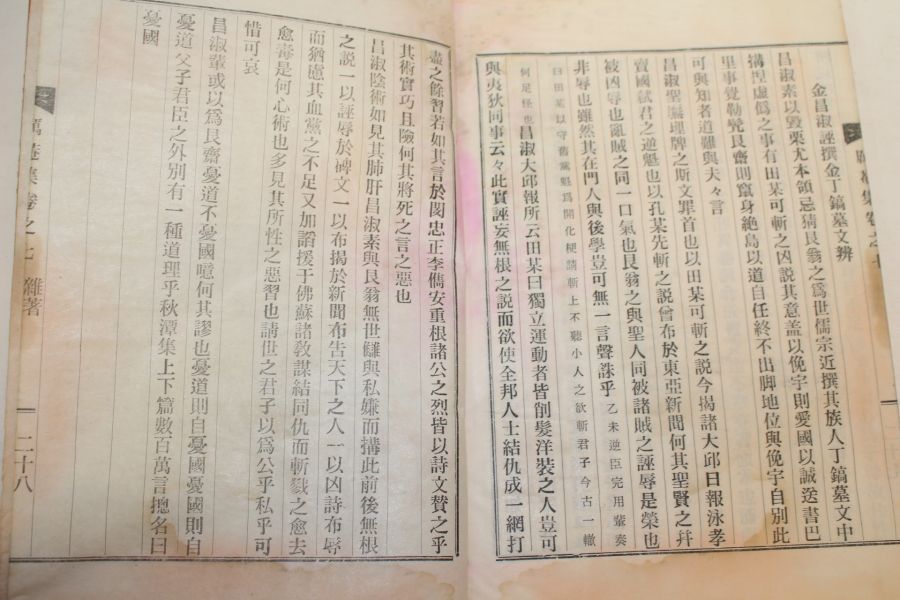 金昌淑誣撰金丁鎬墓文辨
昌淑素以毁栗尤本領忌猜艮翁之爲世儒宗近撰其族人丁鎬墓文中
搆捏虛僞之事有田某可斬之凶說其意盖以俛宇則愛國以誠送書巴
里事覺勒髡艮齋則竄身絶島以道自任終不出脚地位與俛宇自別此
可與知者道難與夫々言
昌淑聖廡埋牌之斯文罪首也以田某可斬之說今揭諸大邱日報泳孝
賣國弑君之逆魁也以孔某先斬之說曾布於東亞新聞何其聖賢之幷
被凶辱也亂賊之同一口氣也艮翁之與聖人同被諸賊之誣辱是榮也
非辱也雖然其在門人與後學豈可無一言聲誅乎乙未逆臣完用輩奏
曰田某以守舊黨魁爲開化梗請斬上不聽小人之欲斬君子今古一轍
何足怪也昌淑大邱報所云田某曰獨立運動者皆削髮洋裝之人豈可
與夷狄同事云々此實誣妄無根之說而欲使全邦人士結仇成一網打
盡之餘習若如其言於閔忠正李儁安重根諸公之烈皆以詩文賛之乎
其術實巧且險何其將死之言之惡也
昌淑陰術如見其肺肝昌淑素與艮翁無世讎與私嫌而搆此前後無根
之說一以誣辱於碑文一以布揭於新聞布告天下之人一以凶詩布辱
而猶慮其血黨之不足又加謟援于佛蘇諸敎謀結同仇而斬戮之愈去
愈毒是何心術也多見其所性之惡習也請世之君子以爲公乎私乎可
惜可哀
昌淑輩或以爲艮齋憂道不憂國噫何其謬也憂道則自憂國憂國則自
憂道父子君臣之外別有一種道理乎秋潭集上下篇數百萬言摠名曰
憂國
集卷之七　雜著
二十八